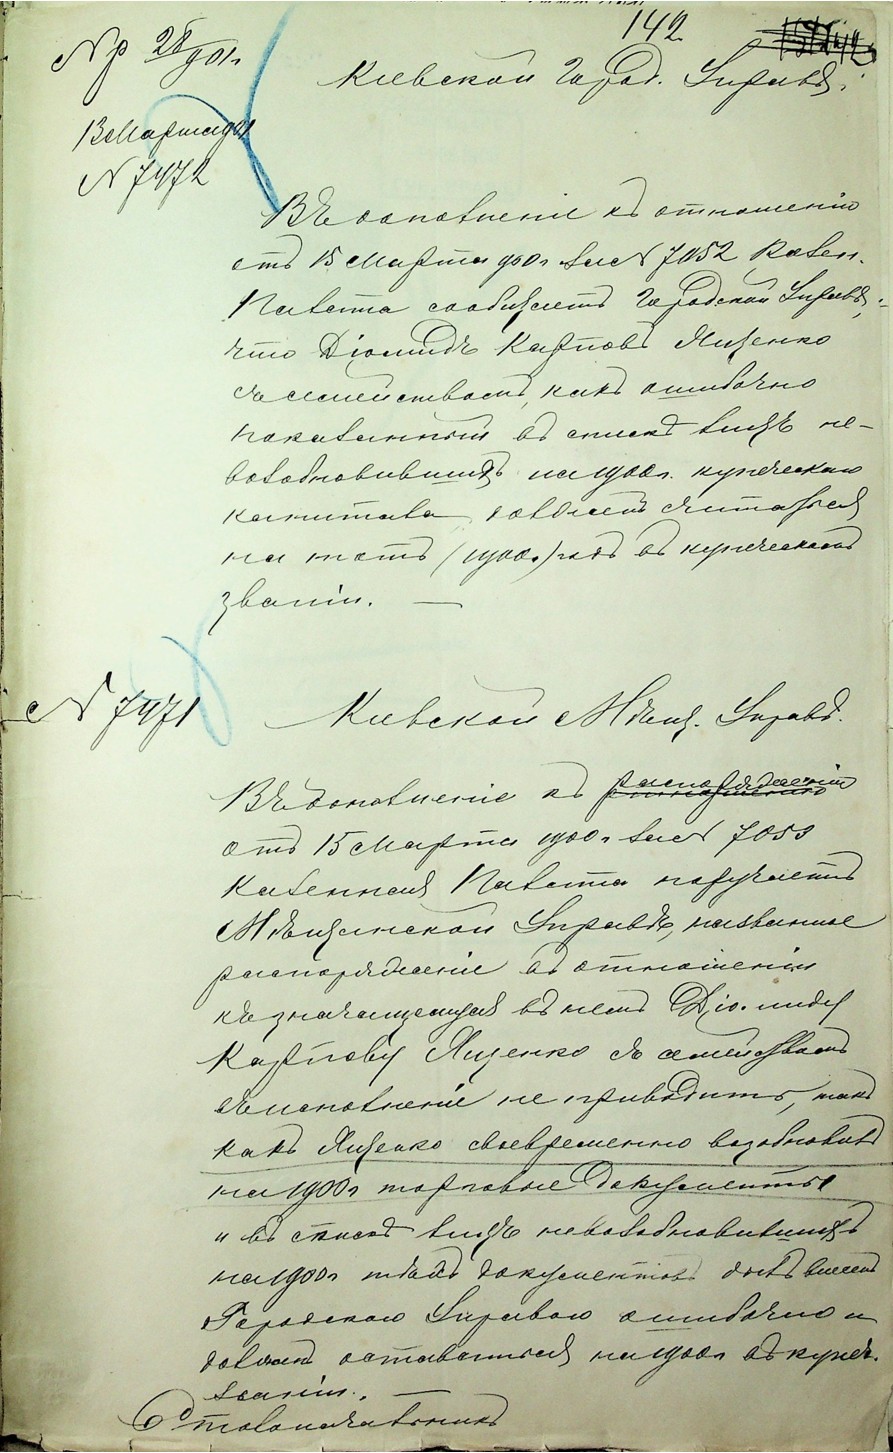 142
Кіевской Город. Управѣ.
13 Марта 901
№ 7472
Въ дополненіе къ отношенію
отъ 15 Марта 900 г. за № 7052 Казен.
Палата сообщаетъ Городской Управѣ,
что Діомидъ Карповъ Яценко
съ семействомъ, какъ ошибочно
показанный въ спискѣ лицъ не-
возобновившихъ на 1900 г. купеческаго
капитала, долженъ считаться
на тотъ (1900 г.) годъ въ купеческомъ
званіи. —
№ 7471
Кіевской Мѣщ. Управѣ.
Въ дополненіе къ распоряженію
отъ 15 Марта 1900 г. за № 7053
Казенная Палата поручаетъ
Мѣщанской Управѣ, названное
распоряженіе въ отношеніи
къ значащемуся въ немъ Діомиду
Карпову Яценко съ семействомъ
въ исполненіе не приводить, такъ
какъ Яценко своевременно возобновилъ
на 1900 г. торговые документы
и въ списокъ лицъ невозобновившихъ
на 1900 г. документовъ былъ внесенъ
Городскою Управою ошибочно и
долженъ оставаться на 1900 г. въ купеч.
званіи. —
Столоначальникъ